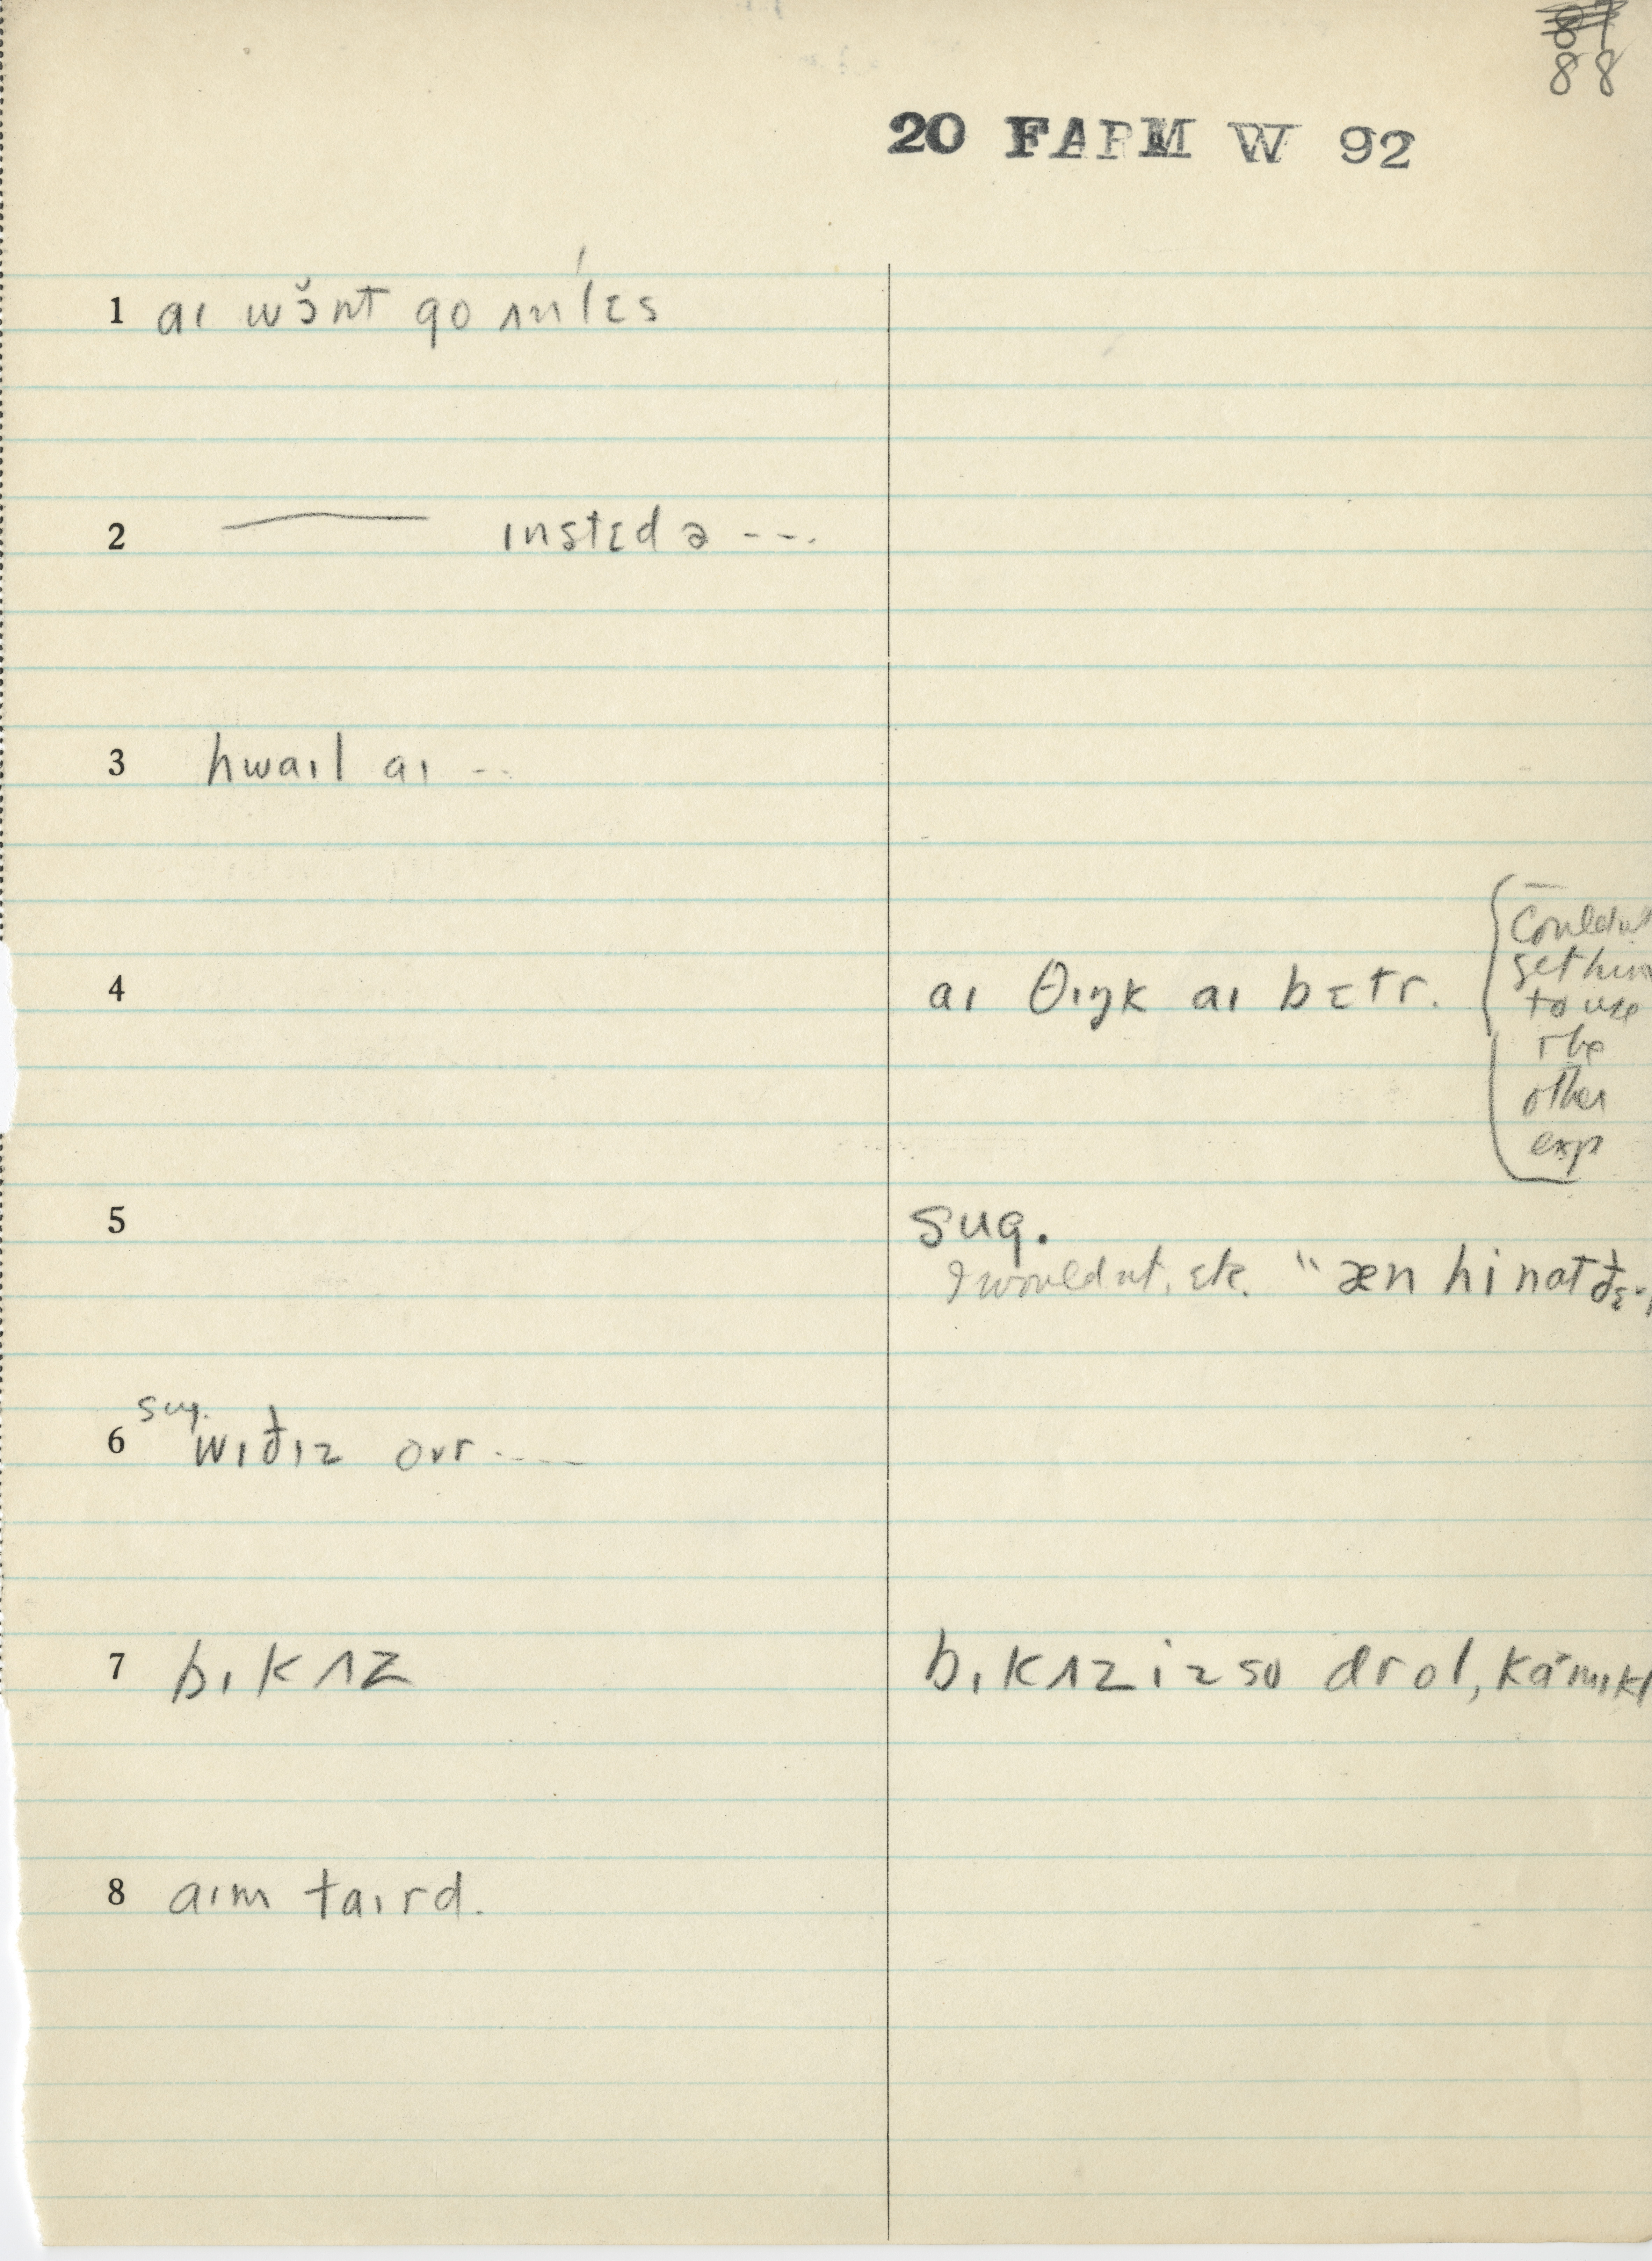 88
20 FARM W 92
1 aı wɔ̆nt go ʌnlɛ́s
2 —— ınstɛd ə ---.
3 hwaıl aı --
4 aı θıŋk aı bɛtr.
Couldn't
get him
to use
the
other
exp
5 sug.
I wouldn't, etc. " æn hi nat ðɛ·r
sug.
6 wıðız ovr ----
7 bıkʌz bıkʌz iz so drol, kámıkl
8 aım taırd.